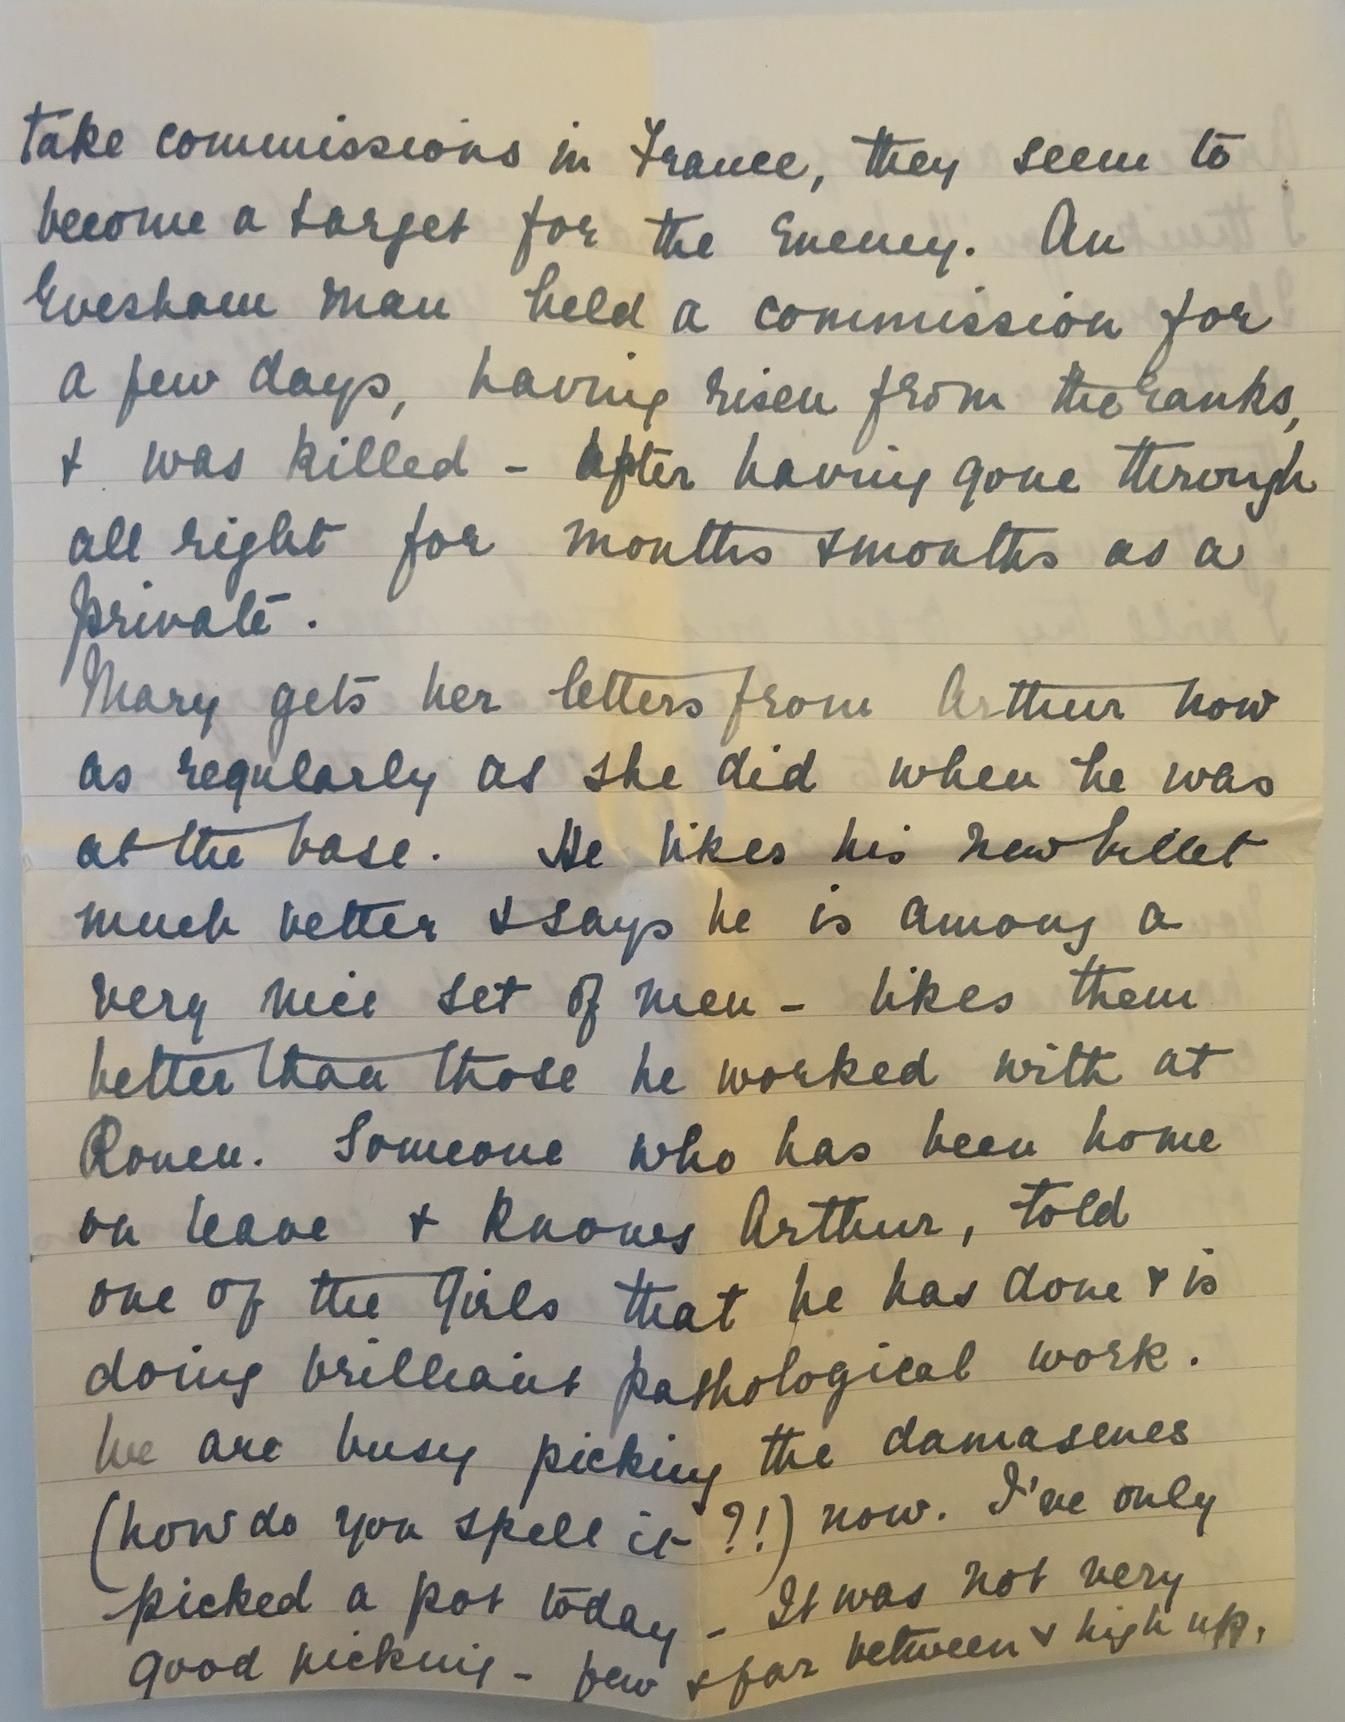 take commissions in France, they seem to
become a target for the Enemy. An
Evesham man held a commission for
a few days, having risen from the ranks,
& was killed - after having gone through
all right for months & months as a
private.
Mary gets her letters from Arthur now
as regularly as she did when he was
at the base. He likes his new billet
much better & says he is among a
very nice set of men - likes them
better than those he worked with at
Rouen. Someone who has been home
on leave & knows Arthur, told
one of the Girls that he has done & is
doing brilliant pathological work.
We are busy picking the damascenes
(how do you spell it?!) now. I've only
picked a pot today - It was not very
good picking - few & far between & high up.